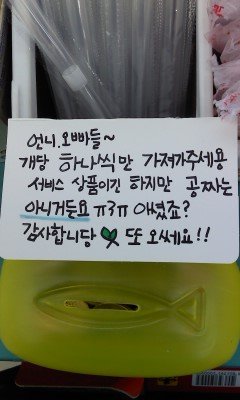 언니.오빠들~
개당 하나씩만 가져가주세용
서비스 상품이긴 하지만 공짜는
아니거든요 ㅠ3ㅠ 아셨죠?
감사합니당 또 오쎄요!!